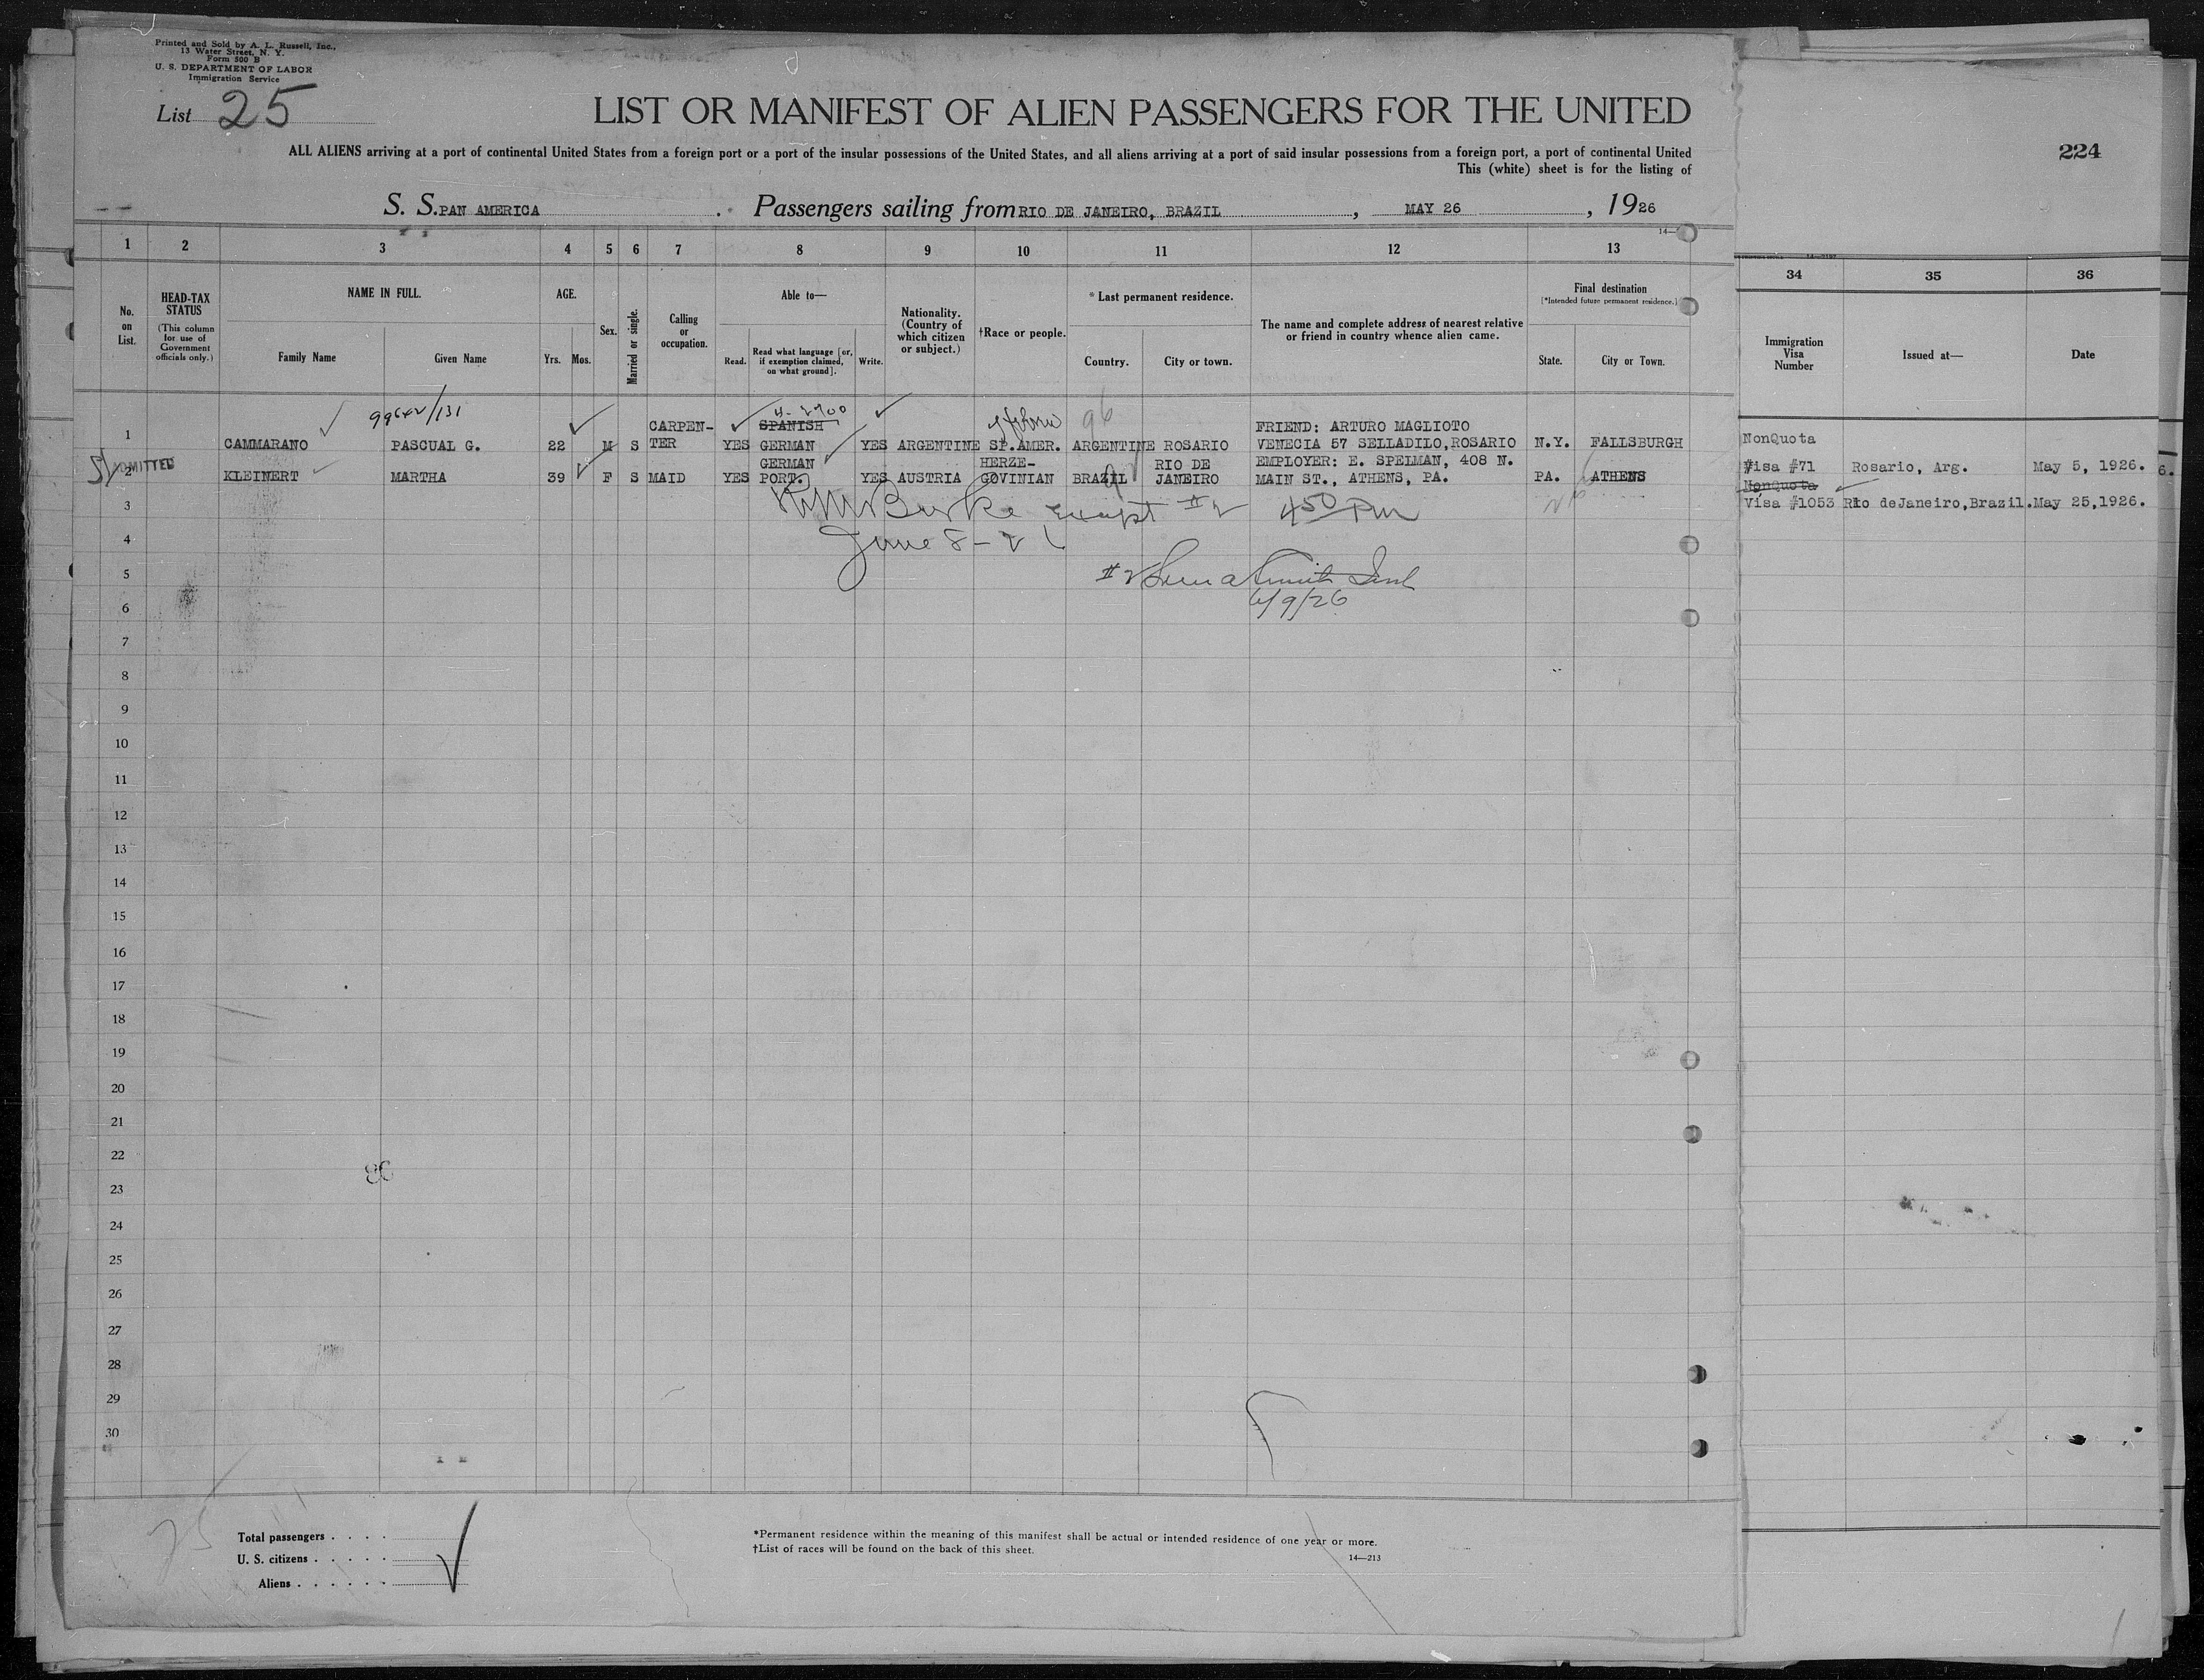 Printed and Sold by A. L. Russell, Inc.,
13 Water Street, N. Y.
Form 500 B
U. S. DEPARTMENT OF LABOR
Immigration Service
List 25
LIST OR MANIFEST OF ALIEN PASSENGERS FOR THE UNITED
224
ALL ALIENS arriving at a port of continental United States from a foreign port or a port of the insular possessions of the United States, and all aliens arriving at a port of said insular possessions from a foreign port, a port of continental United
This (white) sheet is for the listing of
S. S. PAN AMERICA . Passengers sailing from RIO DE JANEIRO, BRAZIL , MAY 26 , 1926
1 2 3 4 5 6 7 8 9 10 11 12 13 34 35 36
No. on List.
HEAD-TAX STATUS
(This column for use of Government officials only.)
NAME IN FULL.
Family Name Given Name
AGE.
Yrs. Mos.
Sex.
Married or single.
Calling or occupation.
Able to—
Read. Read what language [or, if exemption claimed, on what ground]. Write.
Nationality. (Country of which citizen or subject.)
†Race or people.
* Last permanent residence.
Country. City or town.
The name and complete address of nearest relative or friend in country whence alien came.
Final destination
(*Intended future permanent residence.)
State. City or Town.
Immigration Visa Number
Issued at—
Date
99642/131
96
CARPEN- SPANISH FRIEND: ARTURO MAGLIOTO
1 CAMMARANO PASCUAL G. 22 M S TER YES GERMAN YES ARGENTINE SP.AMER. ARGENTINE ROSARIO VENECIA 57 SELLADILO,ROSARIO N.Y. FALLSBURGH NonQuota
ADMITTED GERMAN HERZE- RIO DE EMPLOYER: E. SPELMAN, 408 N. Visa #71 Rosario, Arg. May 5, 1926. 6.
2 KLEINERT MARTHA 39 F S MAID YES PORT. YES AUSTRIA GOVINIAN BRAZIL JANEIRO MAIN ST., ATHENS, PA. PA. ATHENS NonQuota
Visa #1053 Rio deJaneiro,Brazil. May 25,1926.
3 Burke Except #2 450 PM
4 June 8-26
5 #2
6 6/9/26
7
8
9
10
11
12
13
14
15
16
17
18
19
20
21
22
23
24
25
26
27
28
29
30
25
Total passengers . . . .
U. S. citizens . . . . .
Aliens . . . . . .
*Permanent residence within the meaning of this manifest shall be actual or intended residence of one year or more.
†List of races will be found on the back of this sheet.
14—213